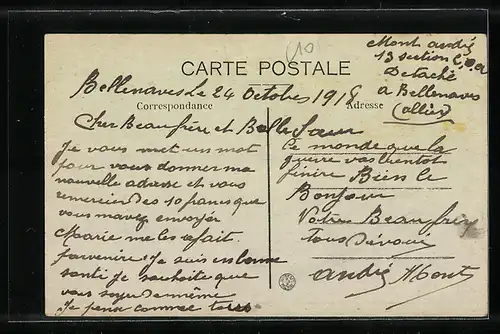 (10
Mont andré
13 section C.O.A
Detaché
a Bellenaves
(allier)
CARTE POSTALE
Bellenaves Le 24 Octobres 1918
Correspondance
Adresse
Cher Beaufrère et Belle Sœur
Je vous met un mot
pour vous donner ma
nouvelle adresse et vous
remercier des 10 francs que
vous mavez envoyer
Marie me les a fait
parvenire. Je suis en bonne
santé je souhaite que
vous soyer de même
Je pense comme tous
Ce monde que la
guerre vas bientot
finire Bien le
Bonjour
Votre Beaufrère
tous Dévoué
andré Mont